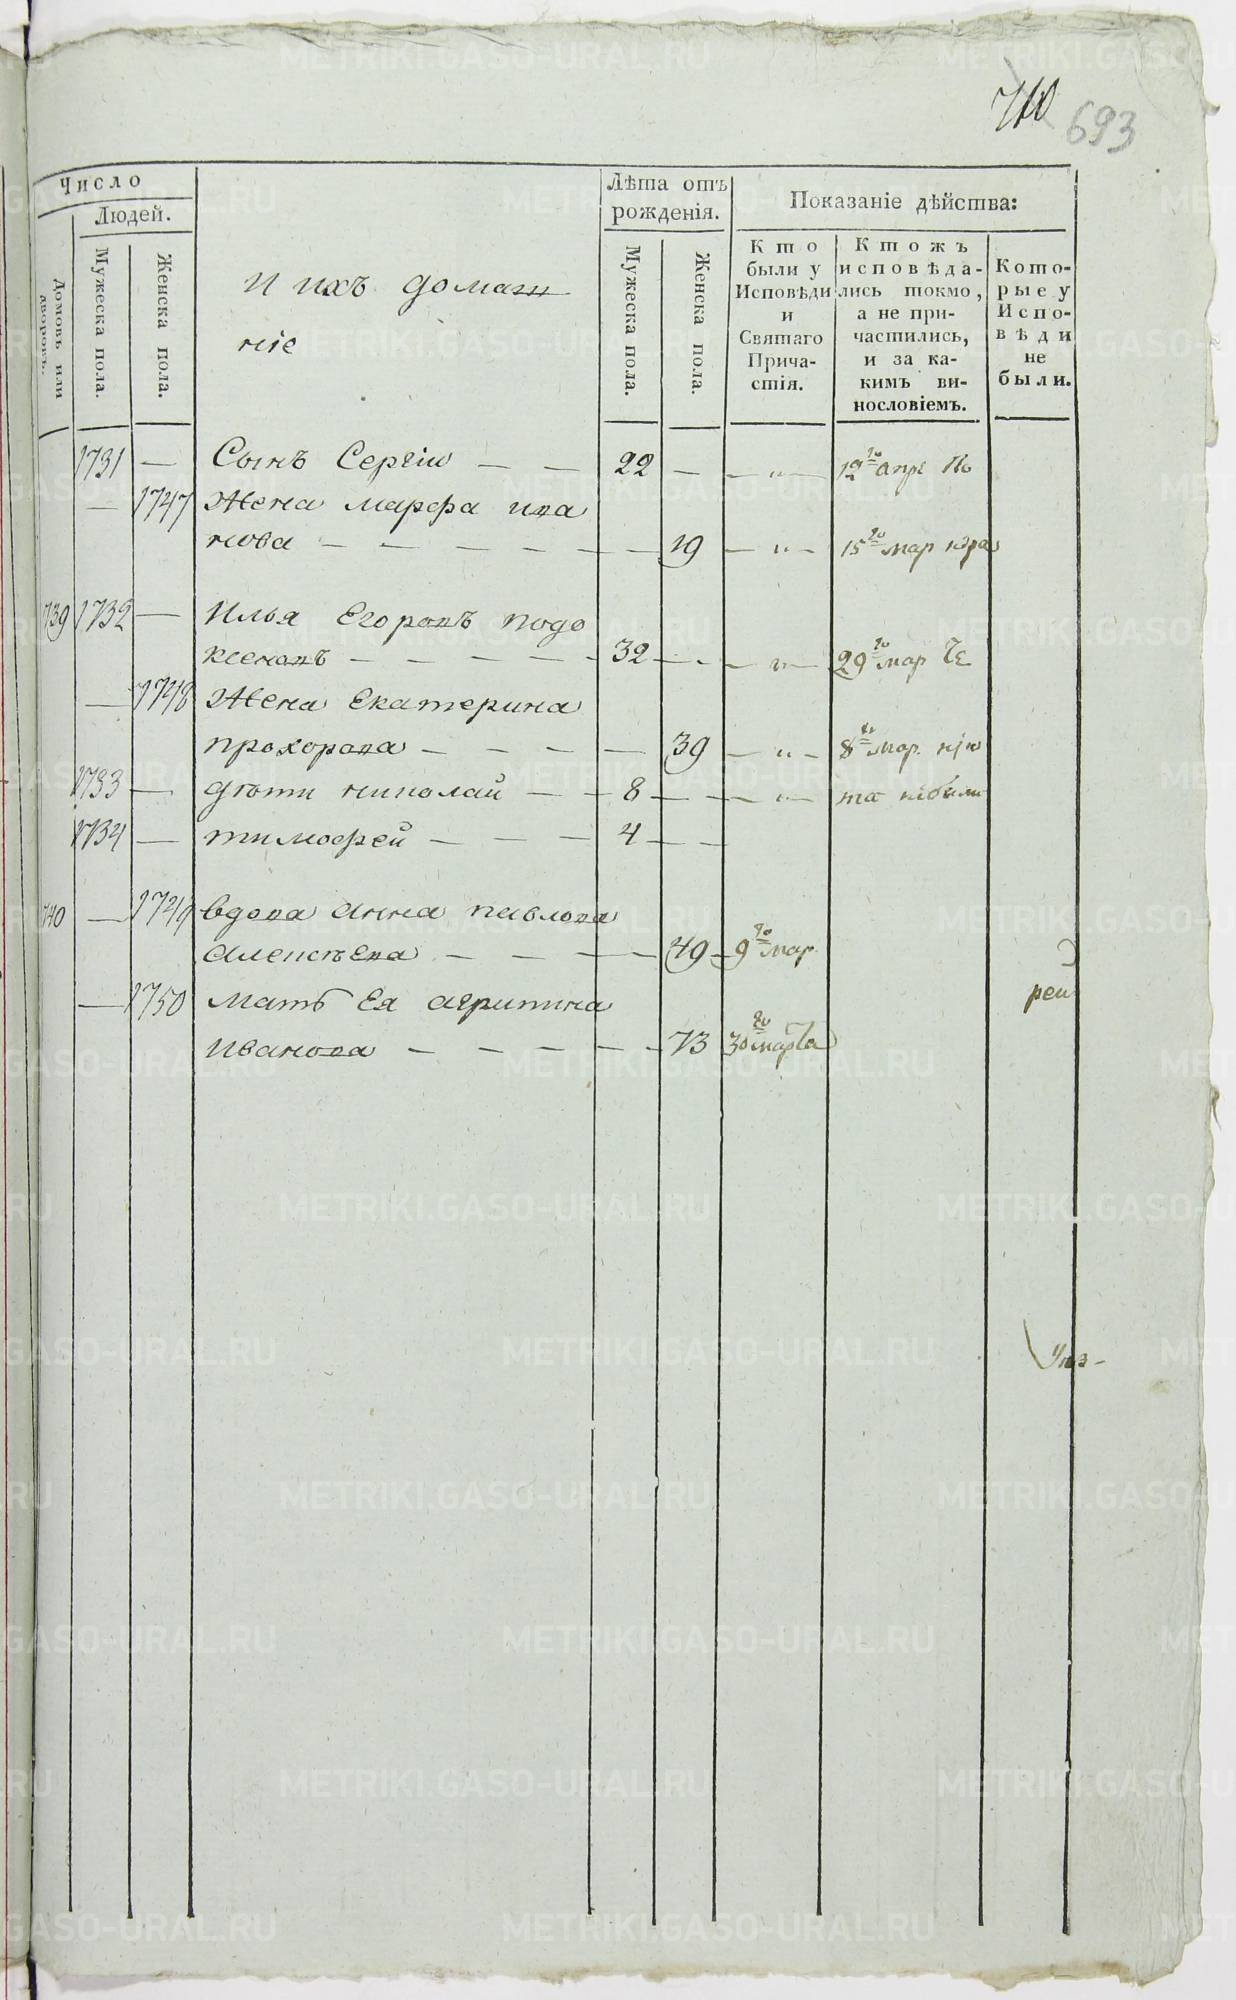 710 693
Число
Людей.
Домовъ или дворовъ.
Мужеска пола.
Женска пола.
и ихъ домаш
ніе
Лѣта отъ
рожденія.
Мужеска пола.
Женска пола.
Показаніе дѣйства:
Кто
были у
Исповѣди
и
Святаго
Прича-
стія.
Ктожъ
исповѣда-
лись токмо,
а не при-
частились,
и за ка-
кимъ ви-
нословіемъ.
Кото-
рые у
Испо-
вѣди
не
были.
1731 — Сынъ Сергій — — 22 — — „ — 12го апре
— 1747 Жена марфа ива
нова — — — — — — 19 — „ — 15го мар
739 1732 — Илья Егоровъ подо
ксеновъ — — — — — 32 — - — „ — 29го мар
— 1748 Жена Екатерина
прохорова — — — — 39 — „ — 8го мар.
1733 — дѣти николай — — 8 — — — „ — та небыли
1734 — тимофей — — — 4 — —
740 — 1749 вдова анна павлова
алексѣева — — — — — 49 — 9го мар.
— 1750 мать Ея агрипина
иванова — — — — — — 73 30го марта